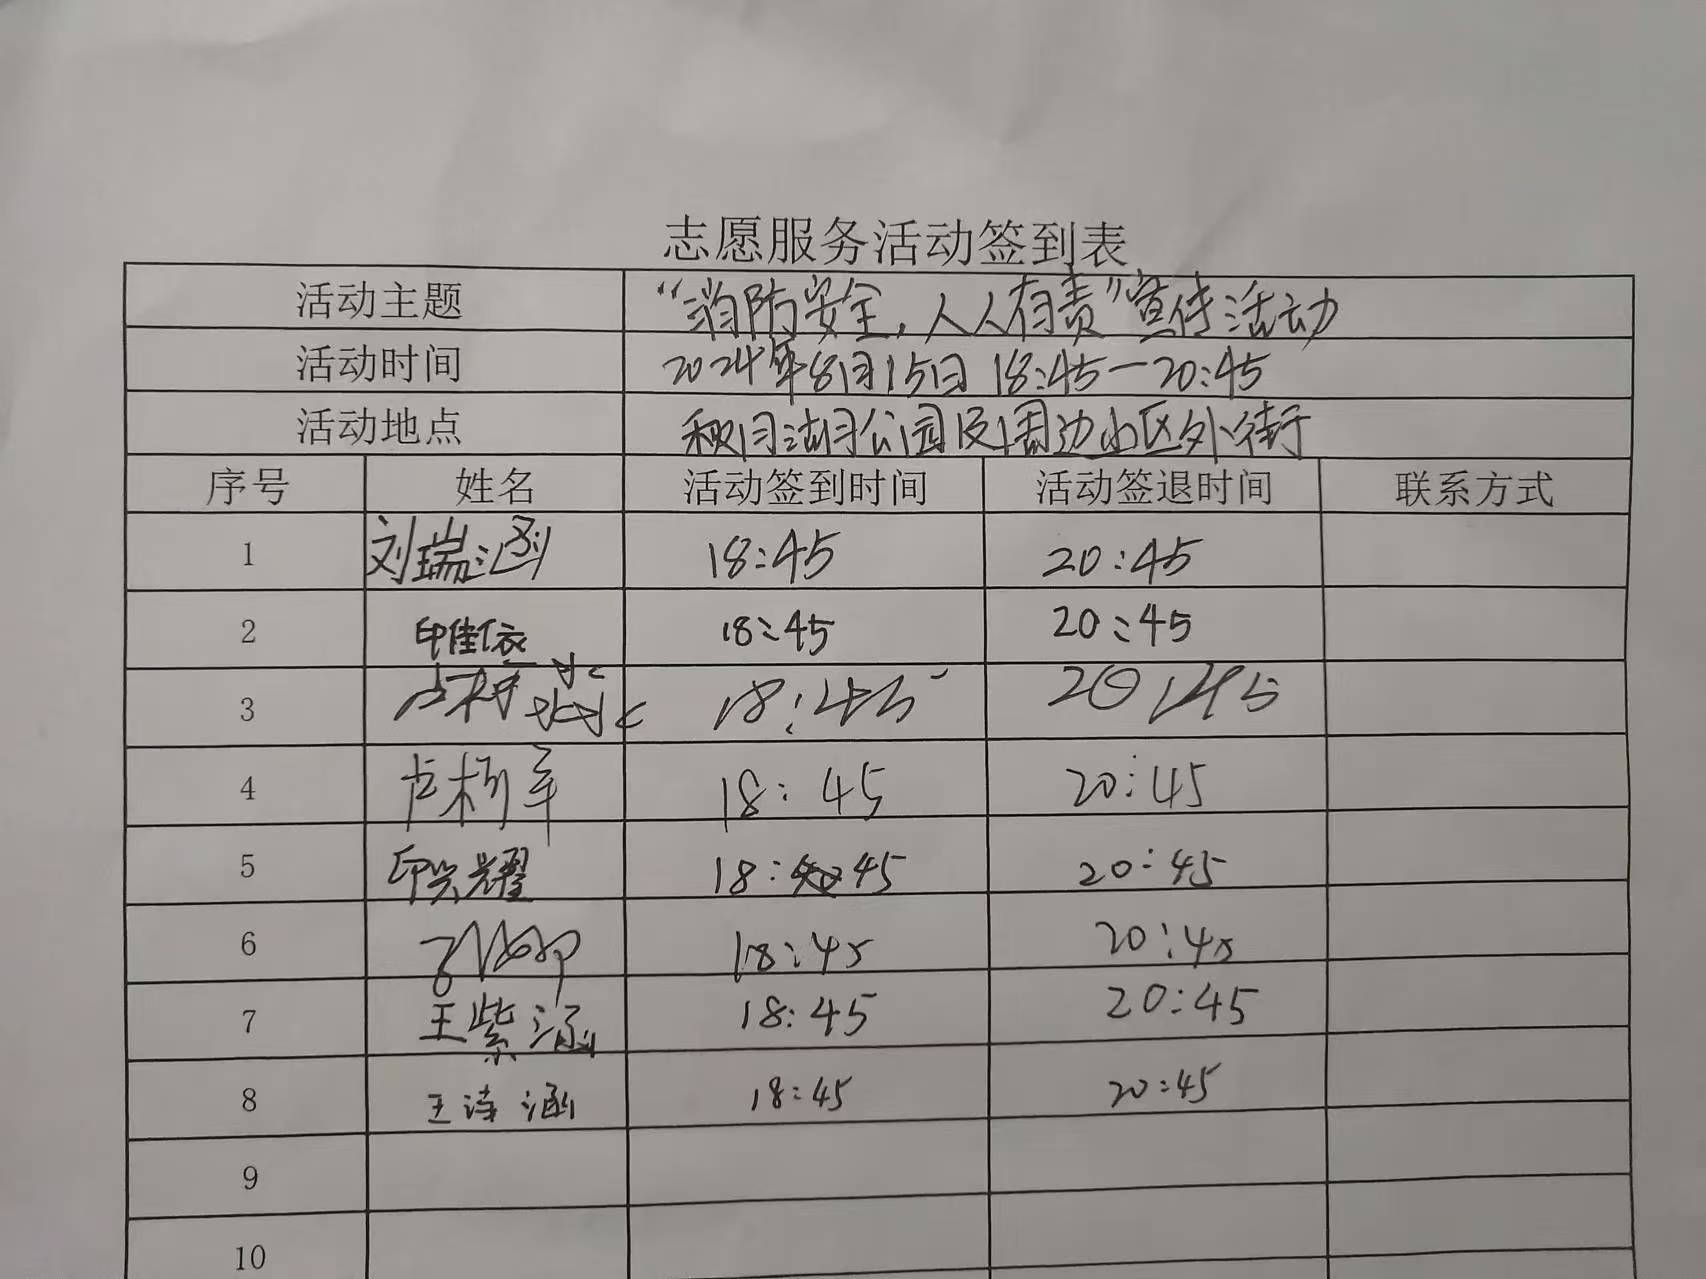 志愿服务活动签到表
活动主题 “消防安全，人人有责”宣传活动
活动时间 2024年8月15日 18:45—20:45
活动地点 秋月湖公园及周边小区外街
序号 姓名 活动签到时间 活动签退时间 联系方式
1 刘瑞涵 18:45 20:45
2 印佳依 18:45 20:45
3 卢梓淼 18:45 20:45
4 18:45 20:45
5 印兴耀 18:45 20:45
6 18:45 20:45
7 王紫涵 18:45 20:45
8 王诗涵 18:45 20:45
9
10